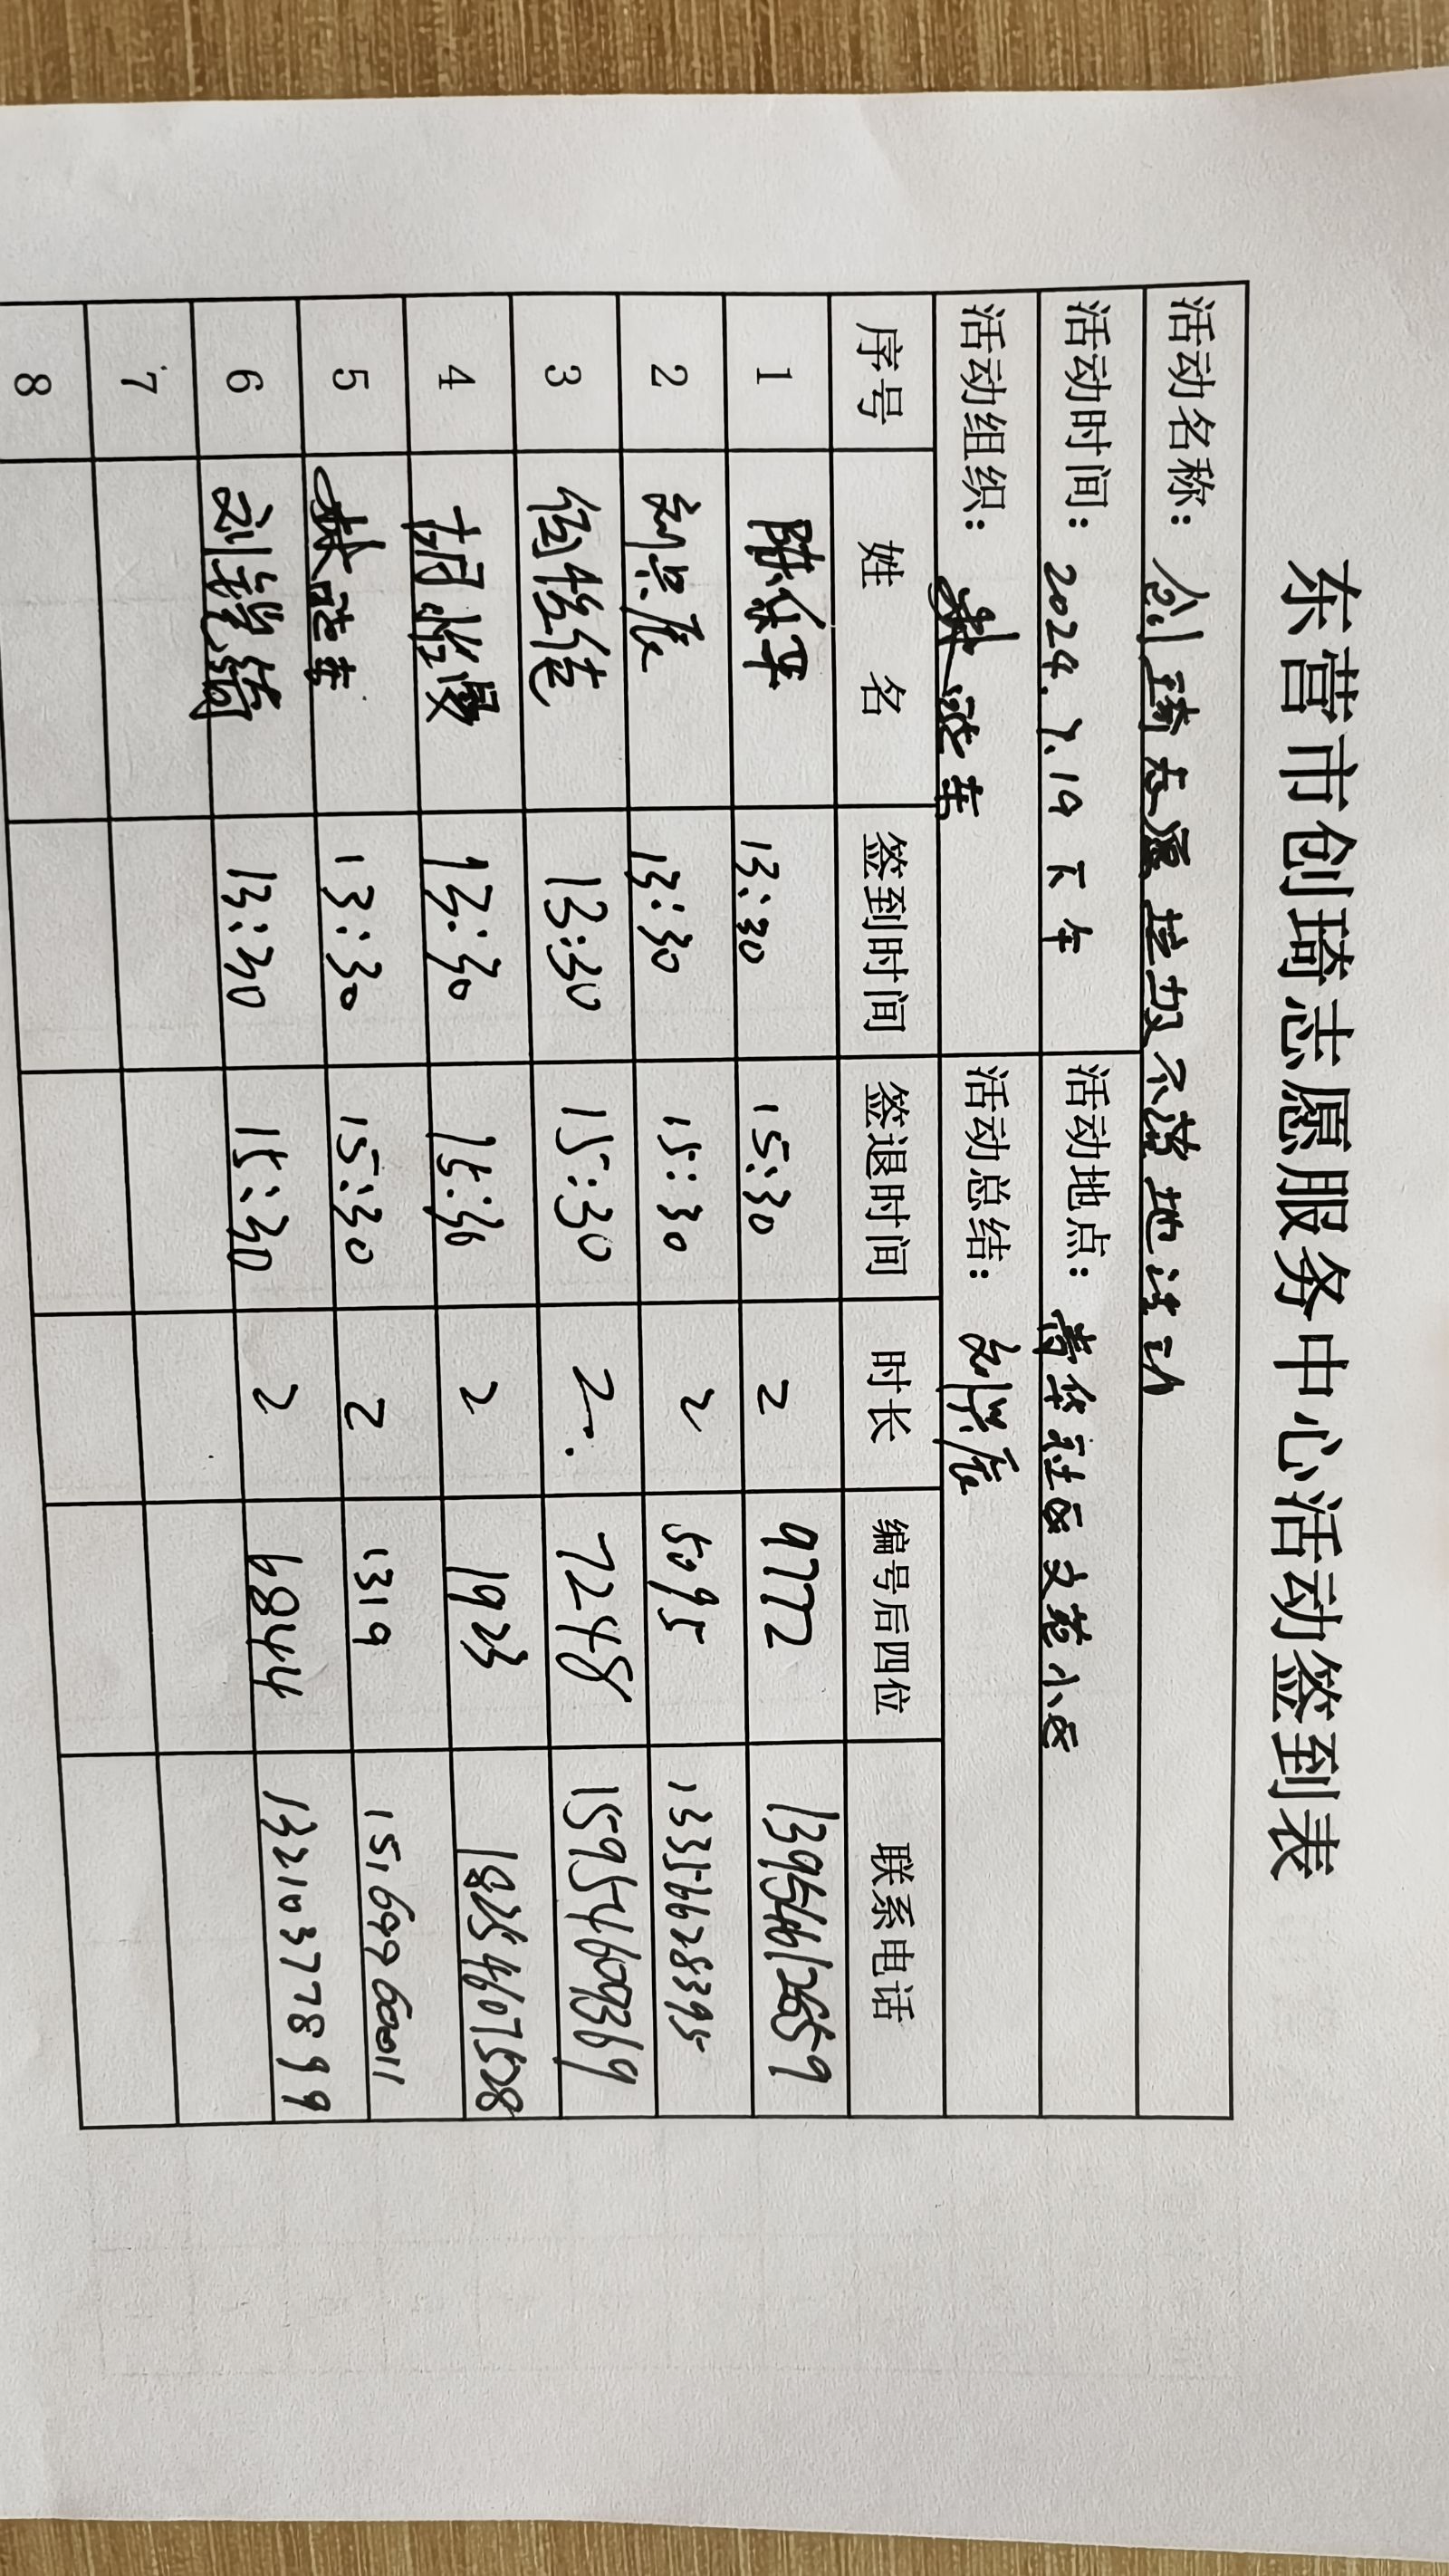 东营市创琦志愿服务中心活动签到表
活动名称：创琦志愿 垃圾不落地活动
活动时间：2024.7.19 下午 活动地点：青华社区文苑小区
活动组织： 活动总结：刘学辰
序号 姓名 签到时间 签退时间 时长 编号后四位 联系电话
1 陈乐华 13:30 15:30 2 9772 13954612659
2 刘学辰 13:30 15:30 2 5095 13356628395
3 13:30 15:30 2 7248 15954609369
4 胡 13:30 15:30 2 1923 18254607528
5 13:30 15:30 2 1319
6 刘 13:30 15:30 2 6844 13210377899
7
8